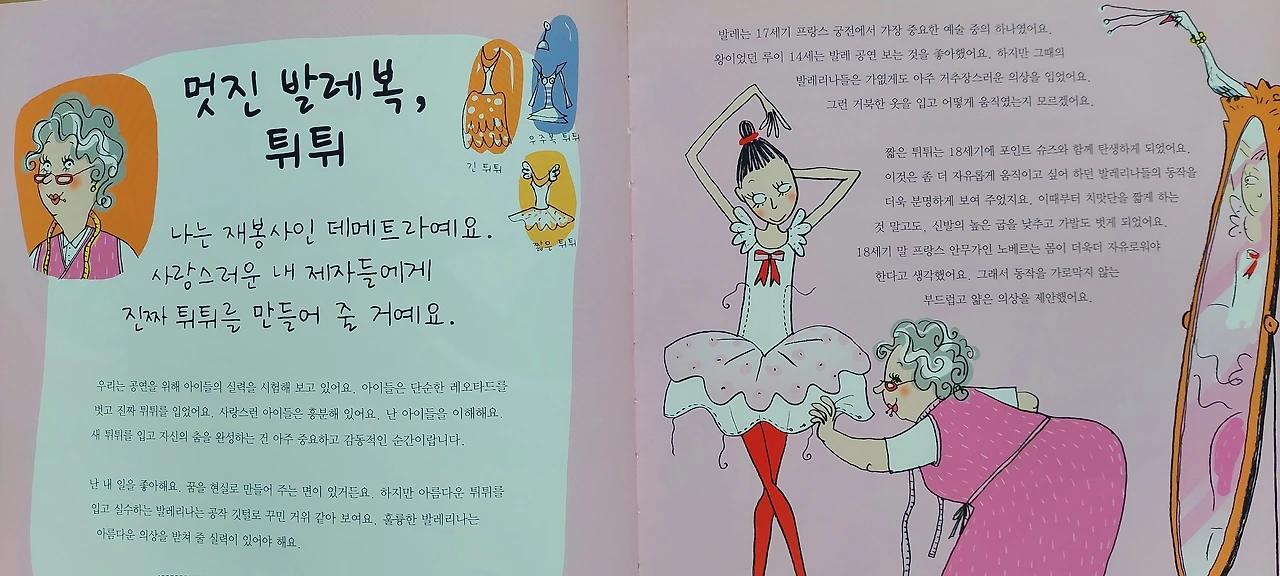 멋진 발레복,
튀튀
긴 튀튀
우주복 튀튀
짧은 튀튀
나는 재봉사인 데메트라예요.
사랑스러운 내 제자들에게
진짜 튀튀를 만들어 줄 거예요.
우리는 공연을 위해 아이들의 실력을 시험해 보고 있어요. 아이들은 단순한 레오타드를
벗고 진짜 튀튀를 입었어요. 사랑스런 아이들은 흥분해 있어요. 난 아이들을 이해해요.
새 튀튀를 입고 자신의 춤을 완성하는 건 아주 중요하고 감동적인 순간이랍니다.
난 내 일을 좋아해요. 꿈을 현실로 만들어 주는 면이 있거든요. 하지만 아름다운 튀튀를
입고 실수하는 발레리나는 공작 깃털로 꾸민 거위 같아 보여요. 훌륭한 발레리나는
아름다운 의상을 받쳐 줄 실력이 있어야 해요.
발레는 17세기 프랑스 궁전에서 가장 중요한 예술 중의 하나였어요.
왕이었던 루이 14세는 발레 공연 보는 것을 좋아했어요. 하지만 그때의
발레리나들은 가엾게도 아주 거추장스러운 의상을 입었어요.
그런 거북한 옷을 입고 어떻게 움직였는지 모르겠어요.
짧은 튀튀는 18세기에 포인트 슈즈와 함께 탄생하게 되었어요.
이것은 좀 더 자유롭게 움직이고 싶어 하던 발레리나들의 동작을
더욱 분명하게 보여 주었지요. 이때부터 치맛단을 짧게 하는
것 말고도, 신발의 높은 굽을 낮추고 가발도 벗게 되었어요.
18세기 말 프랑스 안무가인 노베르는 몸이 더욱더 자유로워야
한다고 생각했어요. 그래서 동작을 가로막지 않는
부드럽고 얇은 의상을 제안했어요.